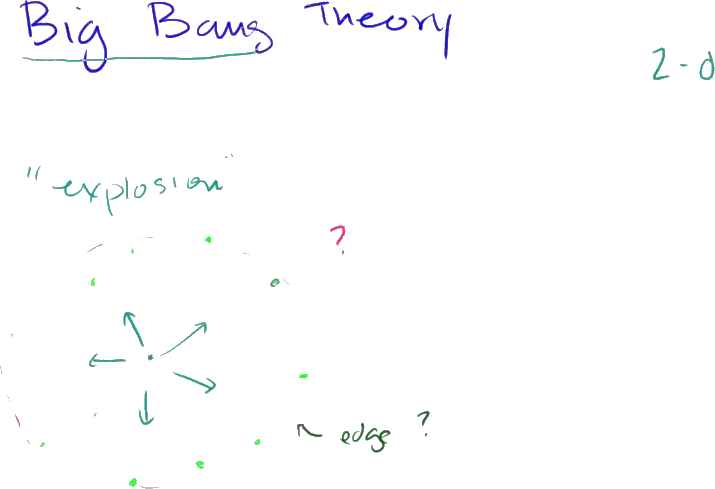 Big Bang Theory
2-d
"explosion"
?
edge ?